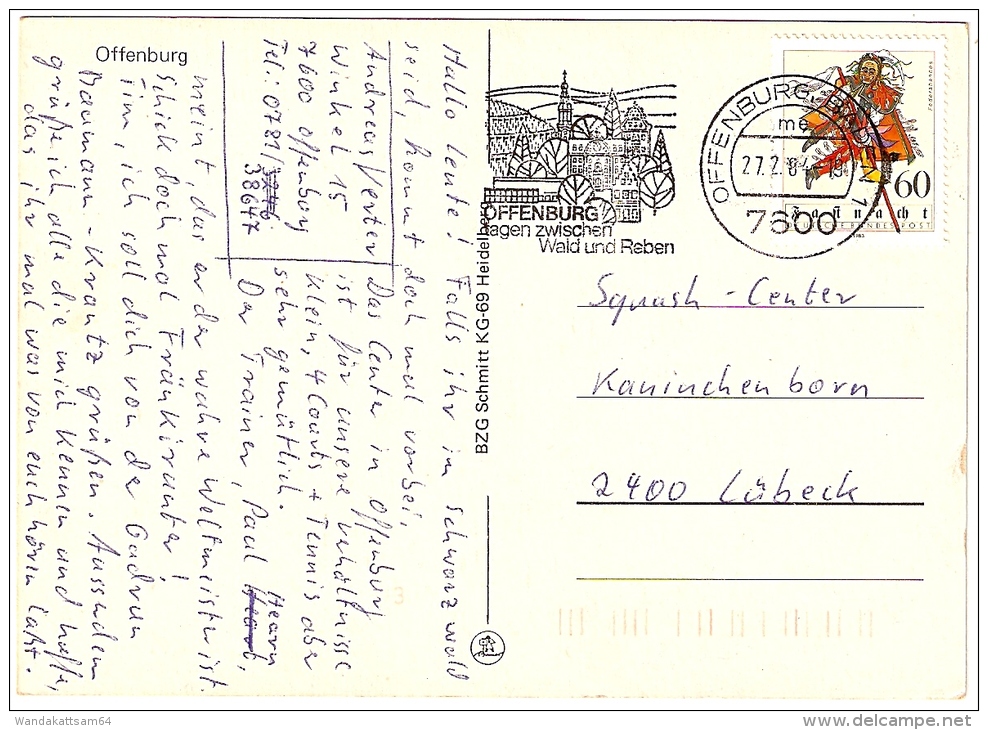 Offenburg
Hallo Leute! Falls ihr im Schwarzwald
seid, kommt doch mal vorbei,
Andreas Verter
Winkel 15
7600 Offenburg
Tel.: 0781/
38647
Das Center in Offenburg
ist für unsere Verhältnisse
klein, 4 Courts + Tennis aber
sehr gemütlich.
Der Trainer, Paul Hearn,
meint, das er der wahre Weltmeister ist.
Schick doch mal Fränki runter!
Timm, ich soll dich von der Gudrun
Baumann-Krantz grüßen. Ausserdem
grüße ich alle die mich kennen und hoffe,
das ihr mal was von euch hören laßt.
BZG Schmitt KG-69 Heidelberg
OFFENBURG
agen zwischen
Wald und Reben
OFFENBURG
me
27.2.84-19
7600
1
Federahannes
60
Fastnacht
DEUTSCHE BUNDESPOST
1983
Squash-Center
Kaninchenborn
2400 Lübeck
Wandakattsam64
www.delcampe.net